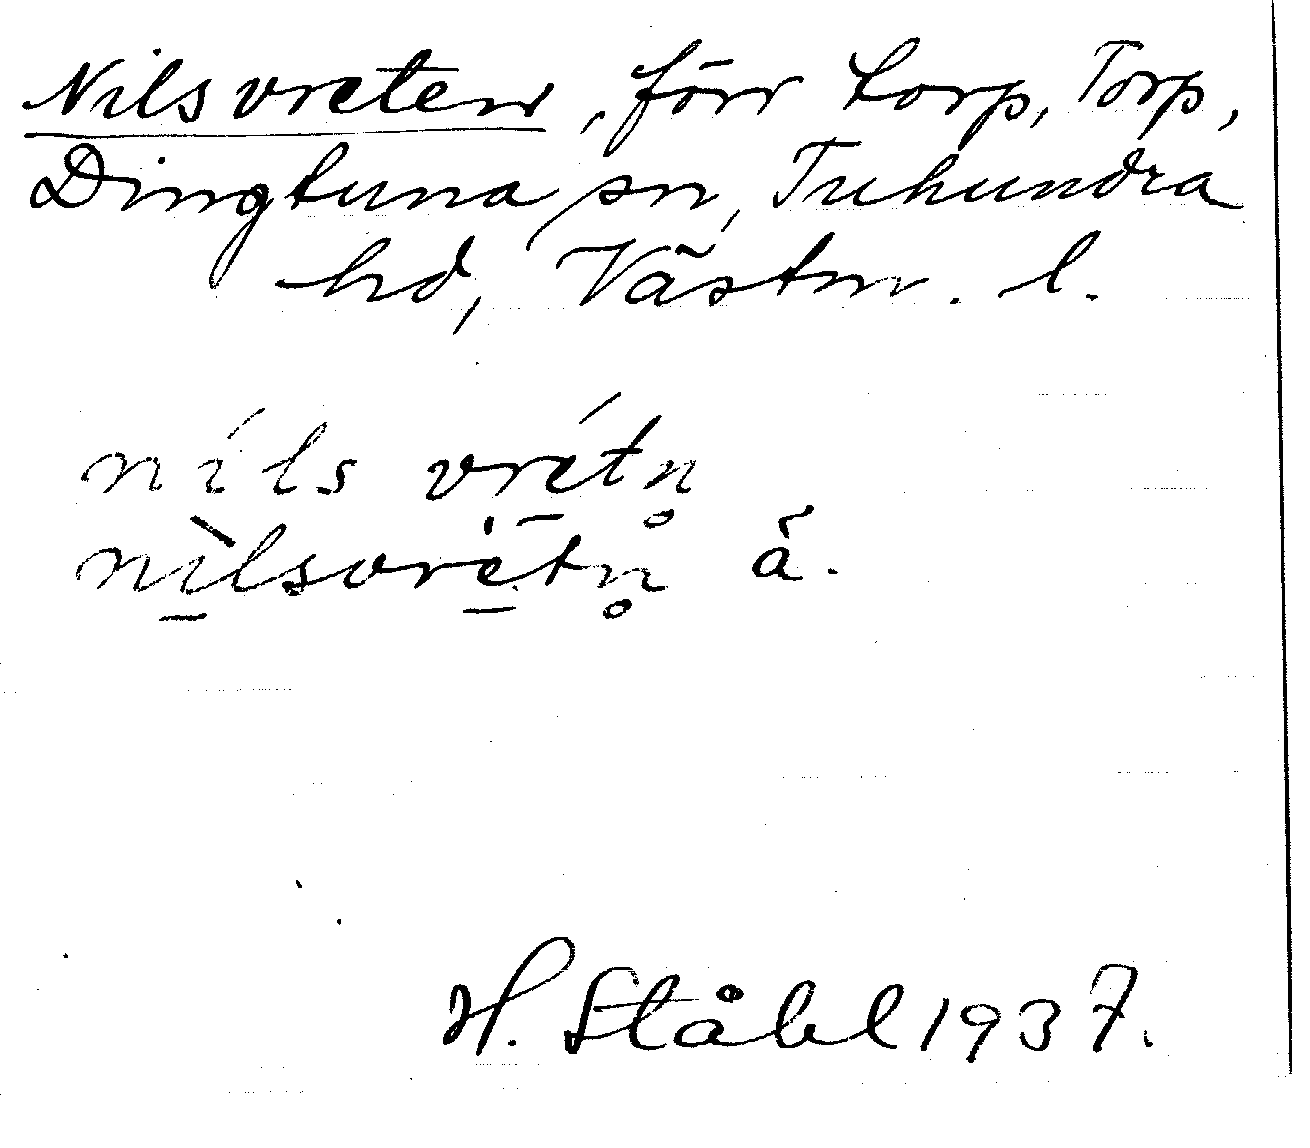 Nilsvreten, förr torp, Torp,
Dingtuna sn, Tuhundra
hd, Västm. l.
níls vré̠tn̥
nì̠lsvrė̠tn̥ ä.
H. Ståhl 1937.